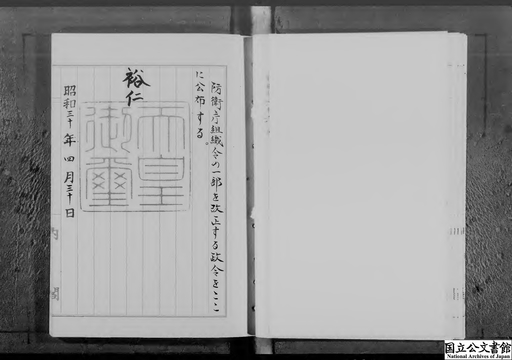 防衛庁組織令の一部を改正する政令をここ
に公布する。
裕仁
天皇
御璽
昭和三十年四月三十日
国立公文書館
National Archives of Japan